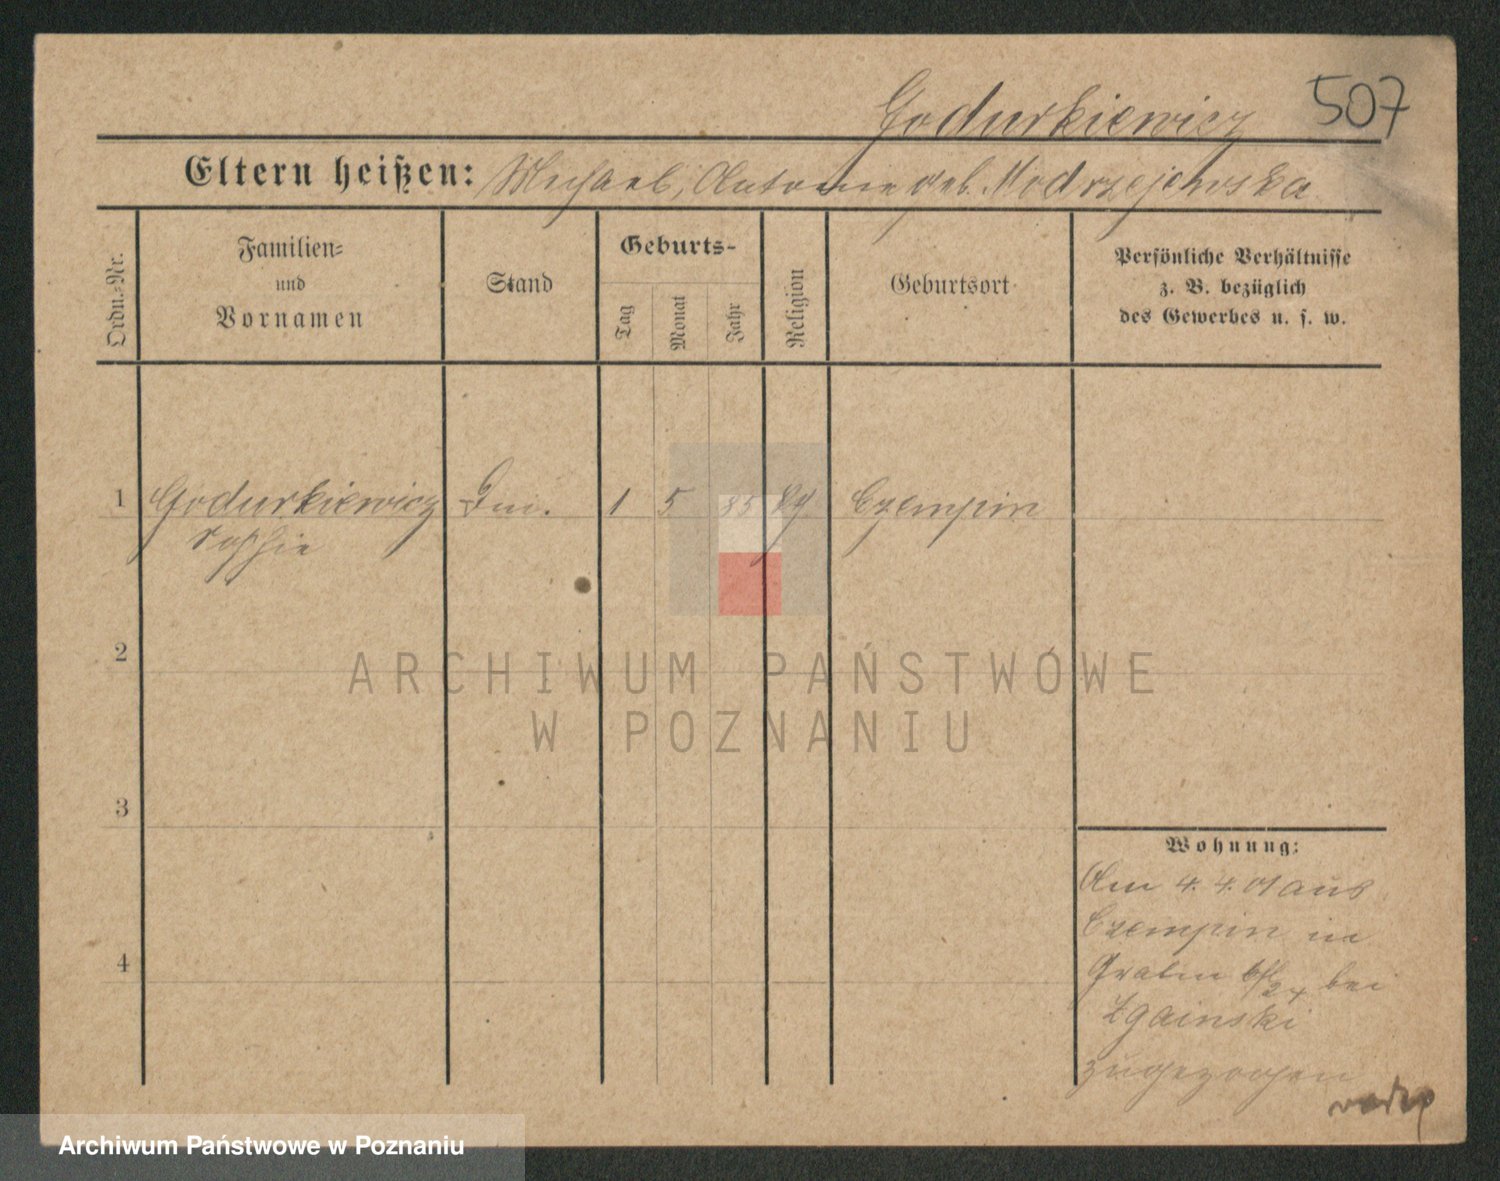 507
Godurkiewicz
Eltern heißen: Michael, Antonie geb. Modrzejewska
Ordn.-Nr.
Familien-
und
Vornamen
Stand
Geburts-
Tag
Monat
Jahr
Religion
Geburtsort
Persönliche Verhältnisse
z. B. bezüglich
des Gewerbes u. s. w.
1 Godurkiewicz 1 5 85 Czempin
Sophie
2
3
4
Wohnung:
Am 4. 4. 01 aus
Czempin in
bei
Zgainski
zugezogen
ARCHIWUM PAŃSTWOWE
W POZNANIU
Archiwum Państwowe w Poznaniu